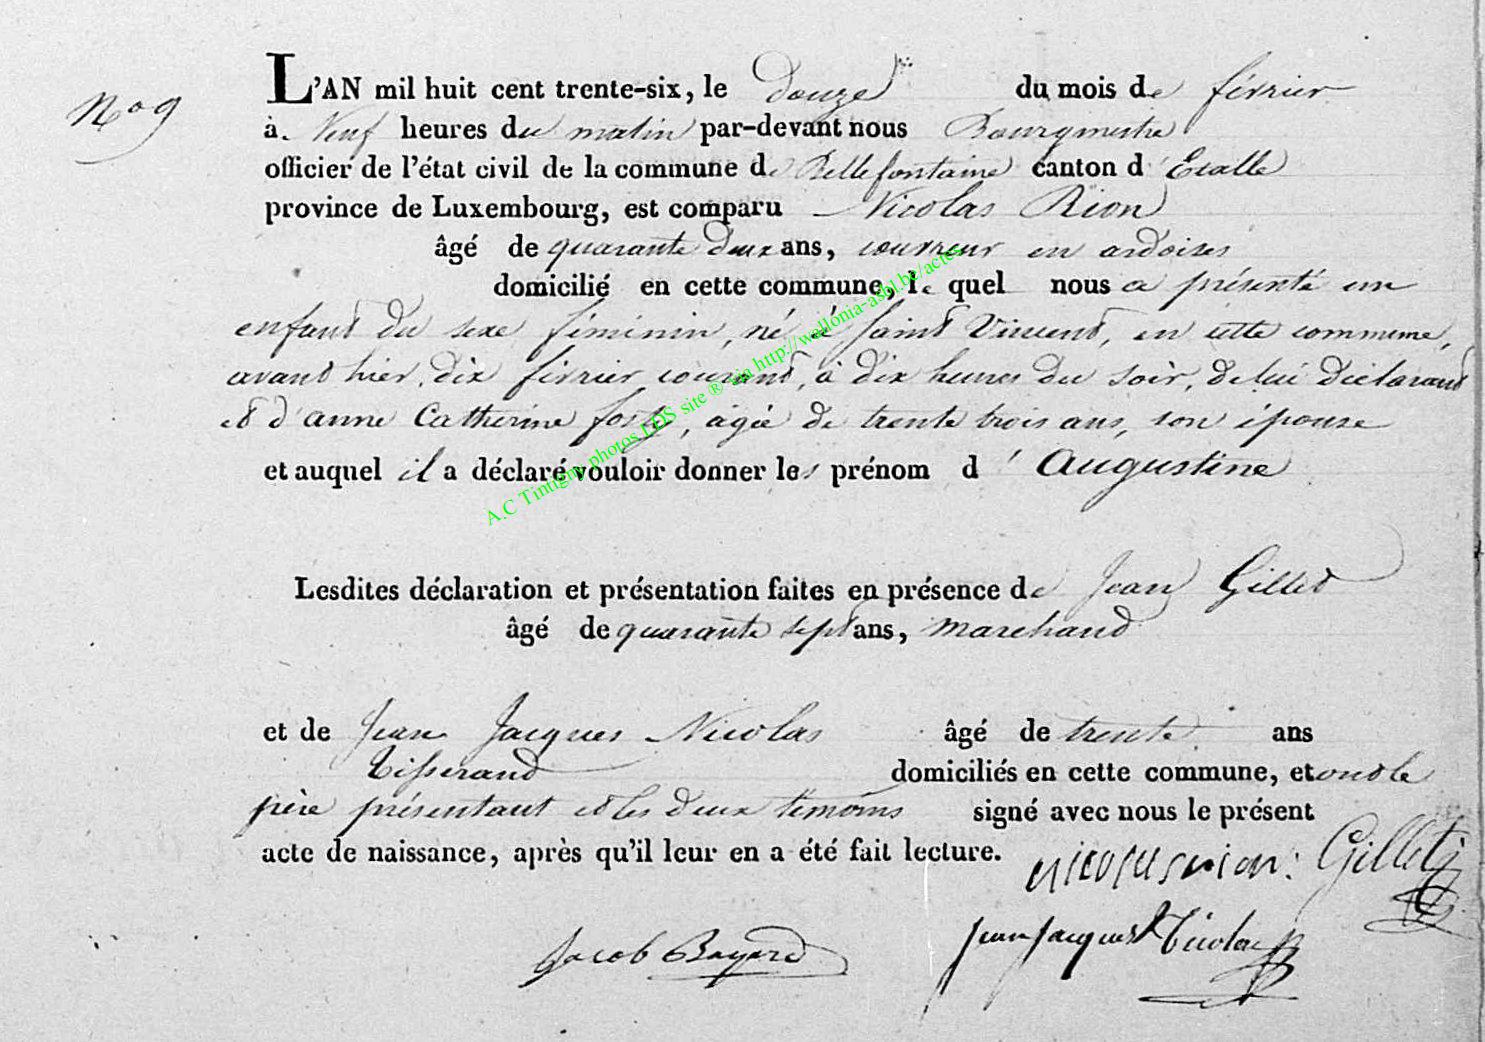 L'AN mil huit cent trente-six, le douze du mois de février
N° 9
à Neuf heures du matin par-devant nous Bourgmestre
officier de l'état civil de la commune de Bellefontaine canton d'Etalle
province de Luxembourg, est comparu Nicolas Rion
âgé de quarante deux ans, couvreur en ardoises
domicilié en cette commune, le quel nous a présenté un
enfant du sexe féminin, né à Saint Vincent, en cette commune,
avant hier, dix février courant, à dix heures du soir, de lui déclarant
et d'anne Catherine, âgée de trente trois ans, son épouse
et auquel il a déclaré vouloir donner les prénom d'Augustine
A.C Tintigny photos LDS site ® via http://wallonia-asbl.be/actes
Lesdites déclaration et présentation faites en présence de Jean Gillet
âgé de quarante sept ans, marchand
et de Jean Jacques Nicolas âgé de trente ans
tisserand domiciliés en cette commune, et ont le
père présentant et les deux témoins signé avec nous le présent
acte de naissance, après qu'il leur en a été fait lecture.
nicolas rion : Gillet j
Jacob Bayard Jean Jacques Nicolas